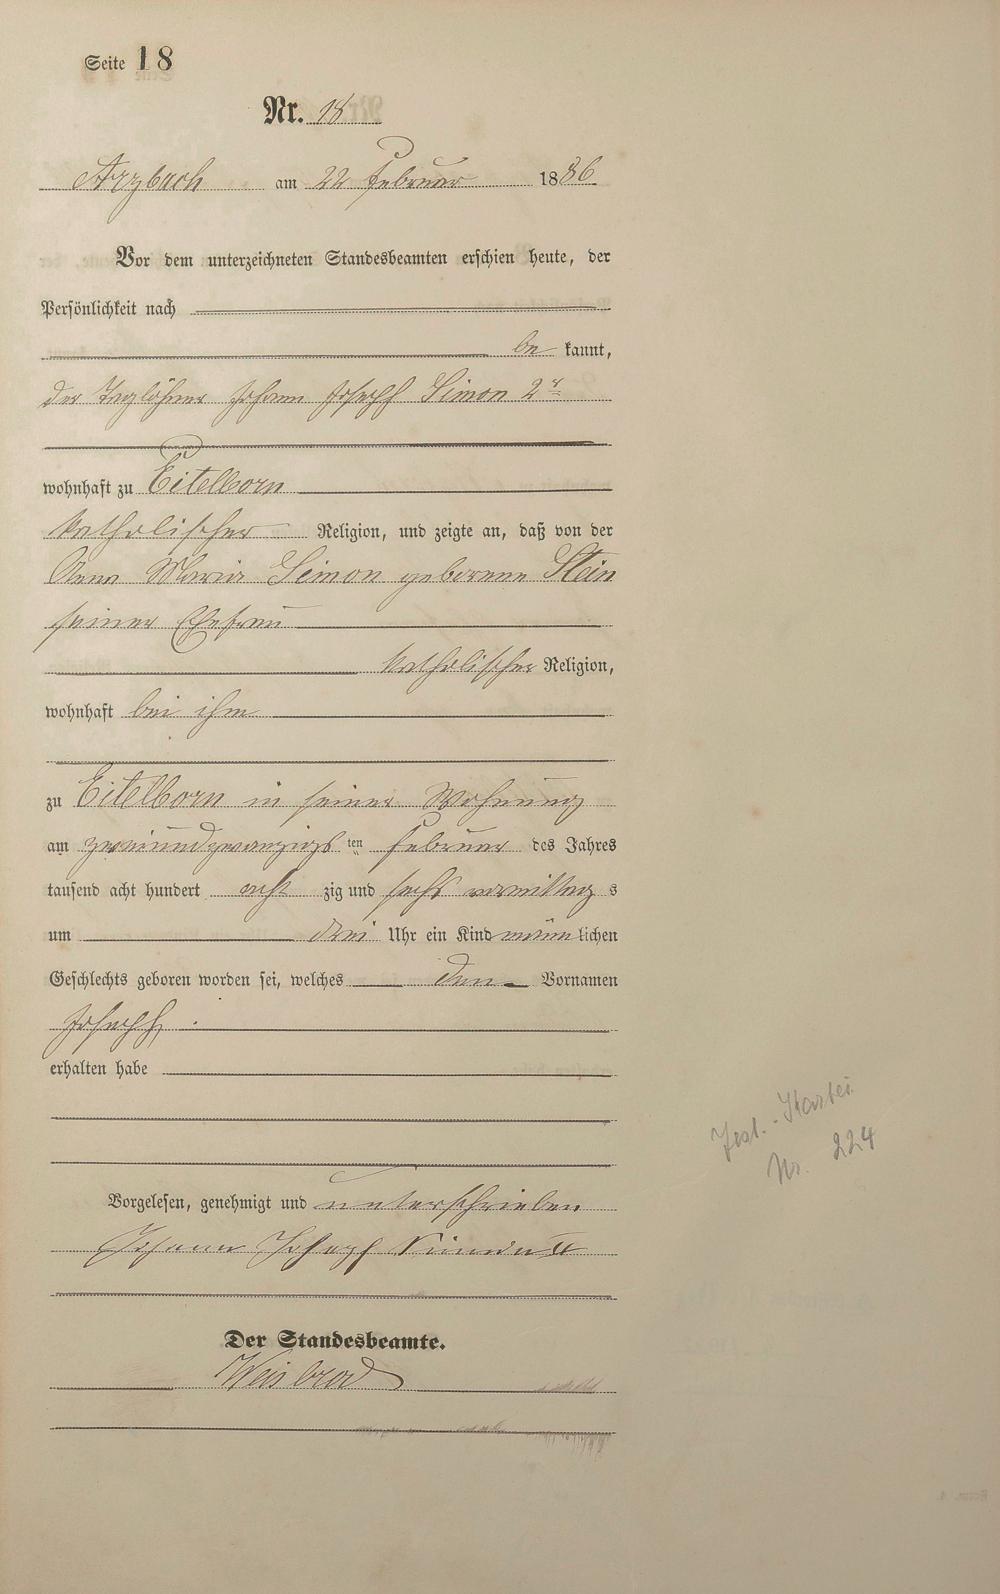 Seite 18
Nr. 18
Arzbach am 22 Februar 1886
Vor dem unterzeichneten Standesbeamten erschien heute, der
Persönlichkeit nach
be kannt,
der Taglöhner Johann Joseph Simon 2r
wohnhaft zu Eitelborn
katholischer Religion, und zeigte an, daß von der
Anna Maria Simon geborene Stein
seiner Ehefrau
katholischer Religion,
wohnhaft bei ihm
zu Eitelborn in seiner Wohnung
am zweiundzwanzigs ten Februar des Jahres
tausend acht hundert acht zig und sechs vormittag s
um drei Uhr ein Kind männ lichen
Geschlechts geboren worden sei, welches den Vornamen
Joseph.
erhalten habe
Vorgelesen, genehmigt und unterschrieben
Johann Joseph Simon II
Der Standesbeamte.
Weisbrod
Nr. 224